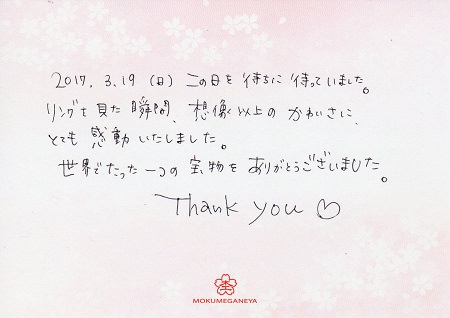 2017. 3.19 (日) この日を待ちに待っていました。
リングを見た瞬間、想像以上のかわいさに、
とても感動いたしました。
世界でたった一つの宝物をありがとうございました。
Thank you ♡
MOKUMEGANEYA